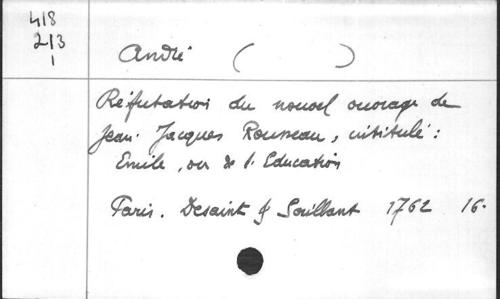 418
213
1
André ( )
Réfutation du nouvel ouvrage de
Jean-Jacques Rousseau, intitulé :
Emile, ou de l'Education
Paris. Desaint & Saillant 1762 16-